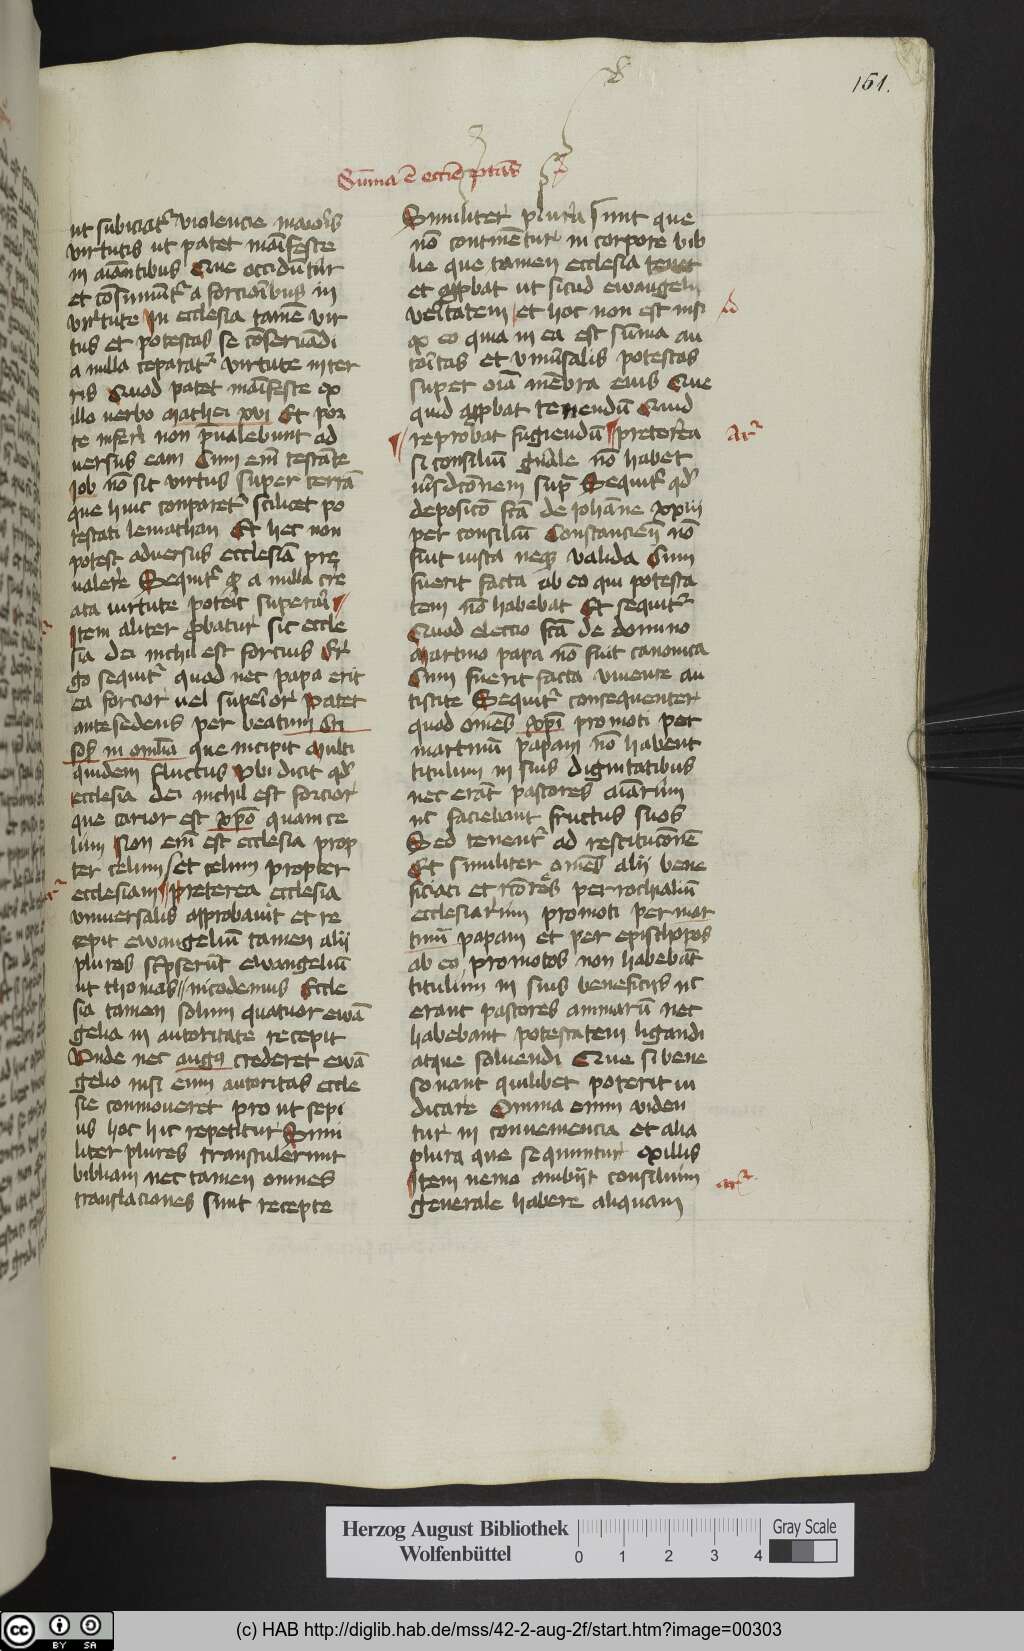 151.
Sūma ē ecclē ptās
ut subiciatr violencie maioris
virtutis ut patet maīfeste
in aīantibus Que occidūtur
et cōsumūtr a forcioribus in
virtute In ecclesia tamē vir
tus et potestas se cōseruādi
a nulla ceparatr virtute infer
ris Quod patet maīfeste ex
illo uerbo mathei xvi Et por
te inferi non pualebunt ad
uersus eam Cum em testāte
Job nō sit virtus super terrā
que huic conparetr scilicet po
testati leuiathan Et hec non
potest adversus ecclesiā pre
ualere Sequitr qd a nulla cre
ata uirtute poterit superari
Item aliter probatur sic eccle
sia dei nichil est forcius Er
go sequitr quod nec papa erit
ea forcior uel superior patet
antesedens per beatum Cri
sos in omilia que incipit Multi
quidem fluctus Vbi dicit qd
ecclesia dei nichil est forcior
que carior est xpo quam ce
lum Non em est ecclesia prop
ter celum set celum propter
ecclesiam preterea ecclesia
vniuersalis approbauit et re
cepit ewangeliū tamen alij
plures scpserūt ewangeliū
ut thomas nicodemus Eccle
sia tamen solum quatuor ewā
gelia in autoritate recepit
Vnde nec augus crederet ewā
gelio nisi eum autoritas eccle
sie conmoueret pro ut sepi
us hoc hic repetitur Simi
liter plures transtulerunt
bibliam nec tamen omnes
translaciones sunt recepte
Similiter plura sunt que
nō continētur in corpore bib
lie que tamen ecclesia tenet
et appbat ut sicud ewangelij
veritatem et hoc non est nisi
ex eo quia in ea est sūma au
toritas et vniusalis potestas
super oīa mēbra eius Que
quid appbat tenendū Quid
reprobat fugiendū preterea
Ar
si consiliū grāle nō habet
iurisdcōnem supra Sequitr qd
deposicō fcā de Johāne xxiij
per consiliū Constancien̄ nō
fuit iusta neqz valida Cum
fuerit facta ab eo qui potesta
tem nō habebat Et sequitr
Quod eleccio fcā de domino
martino papa nō fuit canonica
Cum fuerit facta viuente an
tistite Sequitr consequenter
quod omēs xpi promoti per
martinū papam nō habent
titulum in suis dignitatibus
nec erāt pastores aīarum
nec faciebant fructus suos
Sed tenentr ad restitucōnē
Et similiter omēs alij bene
ficiati et rcōres perrochialiū
ecclesiarum promoti per mar
tinū papam et per epischopos
ab eo promotos non habebāt
titulum in suis beneficijs nec
erant pastores animarū nec
habebant potestatem ligandi
atque soluendi Que si bene
sonant quilibet poterit iu
dicare Omnia enim viden
tur in conueniencia et alia
plura que sequuntur ex illis
Item nemo ambijt consilium
ar
generale habere aliquam
Herzog August Bibliothek
Wolfenbüttel
0 1 2 3 4
Gray Scale
cc BY SA
(c) HAB http://diglib.hab.de/mss/42-2-aug-2f/start.htm?image=00303